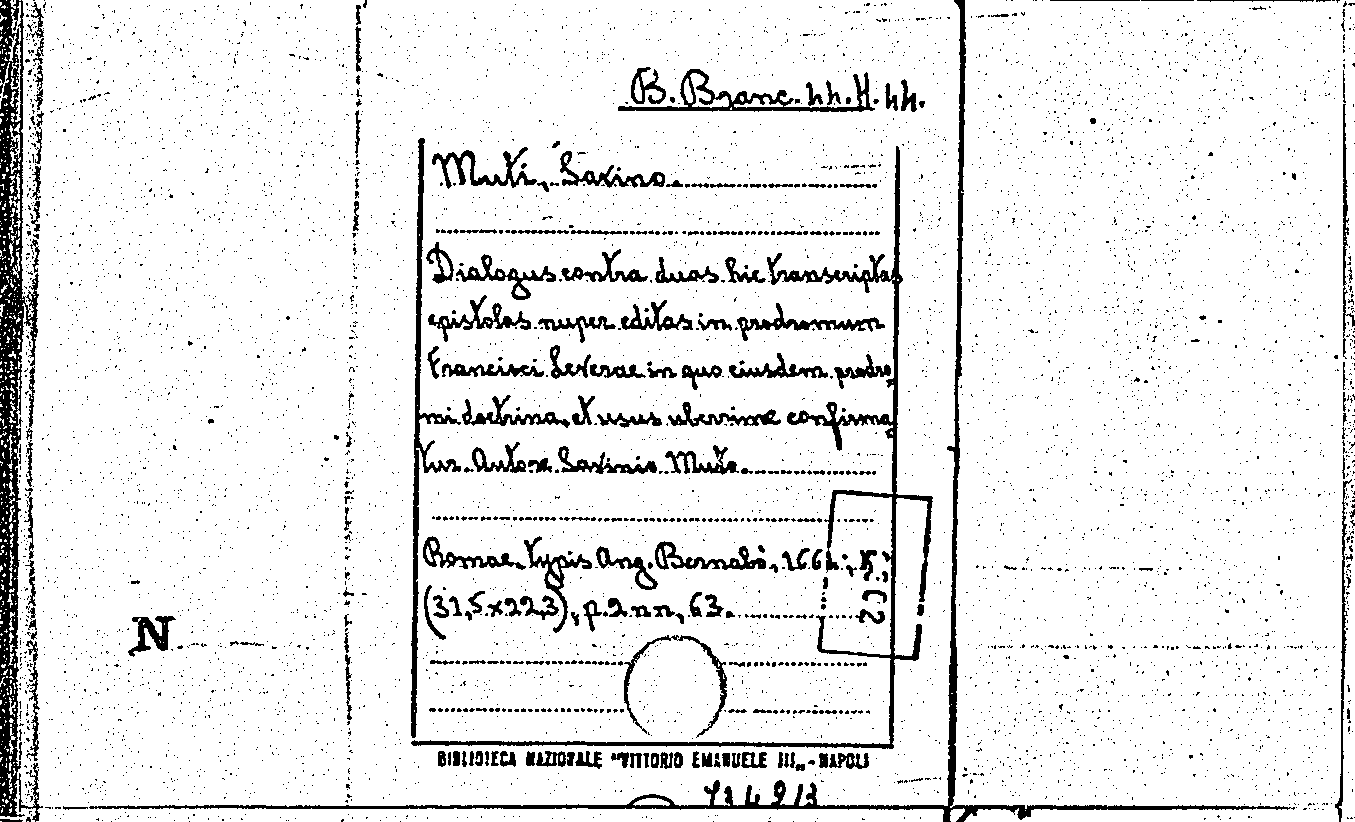 B. Branc. 44. H. 44.
Muti, Lavino.
Dialogus contra duas hic transcriptas
epistolas nuper editas in prodromum
Francisci Leverae in quo eiusdem prodro-
mi doctrina, et usus uberrime confirma-
tur. Autore Lavinio Muto.
Romae, typis Ang. Bernabò, 1664;
(31,5x22,3), p. 2 nn, 63.
N
BIBLIOTECA NAZIONALE "VITTORIO EMANUELE III„ - NAPOLI